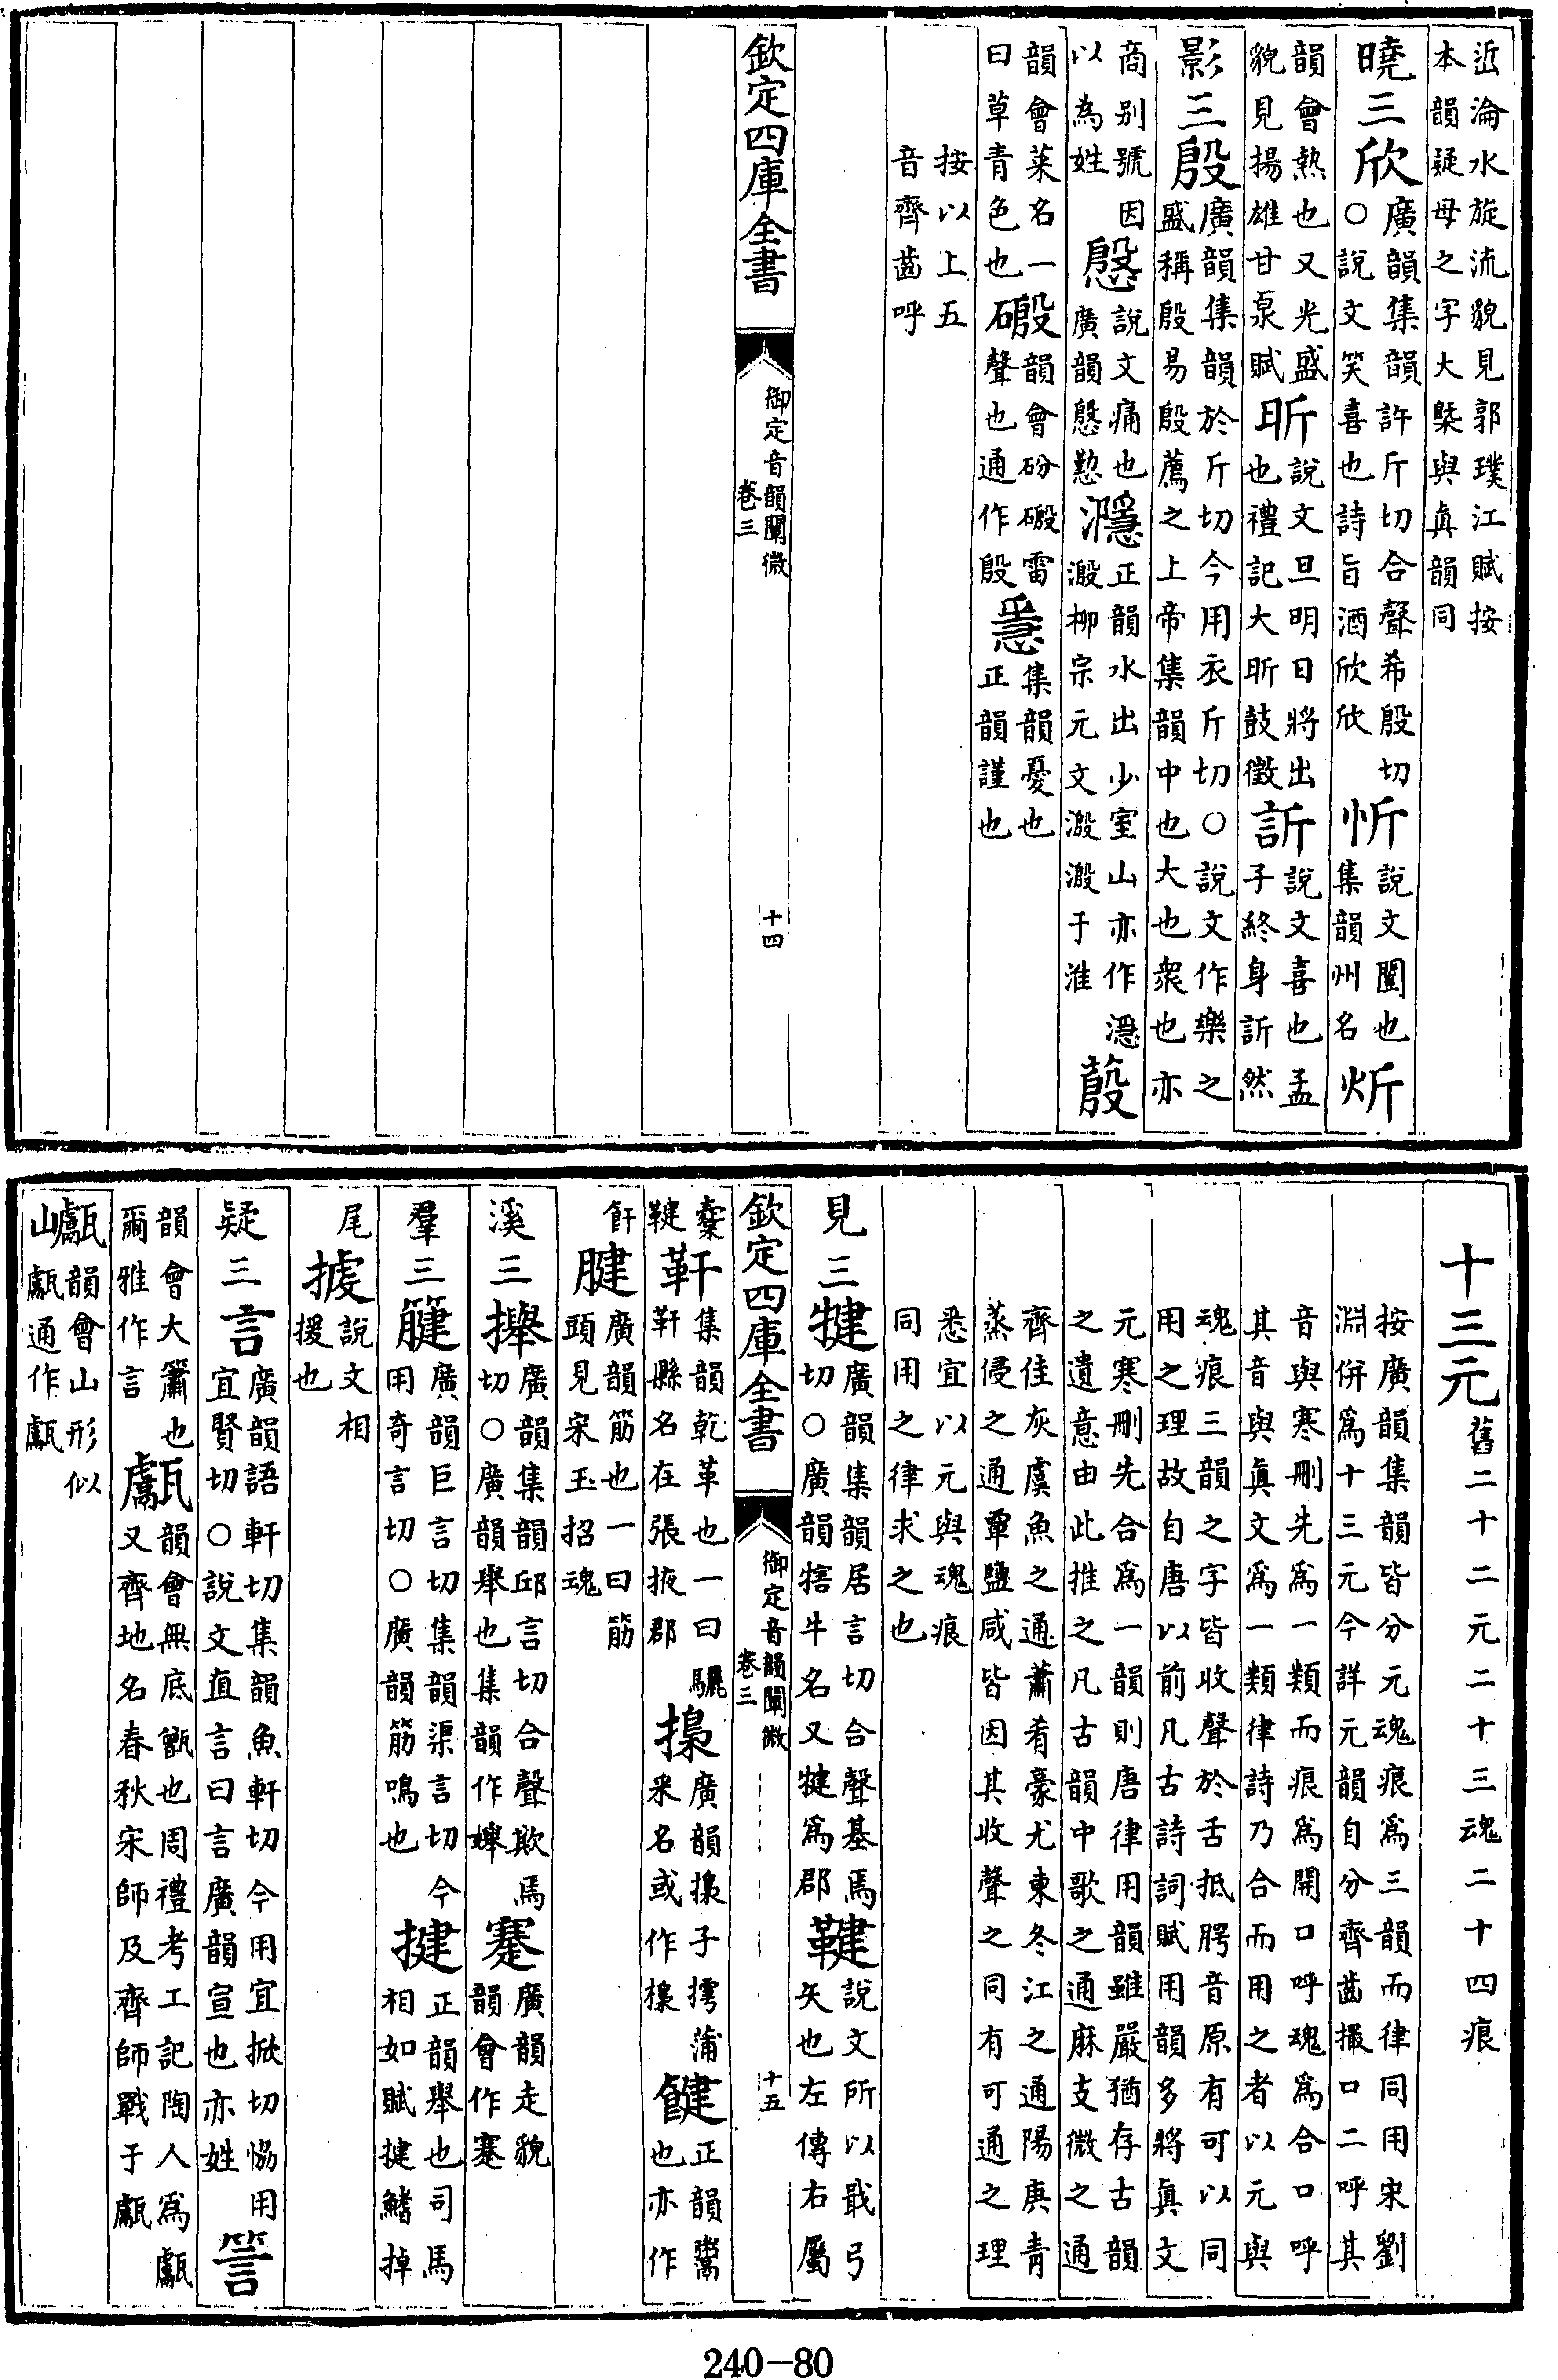 㴐淪水旋流貌見郭璞江賦按本韻疑母之字大槩與真韻同
曉三欣廣韻集韻許斤切合聲希殷切○說文笑喜也詩旨酒欣欣忻說文闓也集韻州名炘
韻會熱也又光盛貌見揚雄甘泉賦昕說文旦明日將出也禮記大昕鼓徵訢說文喜也孟子終身訢然
影三殷廣韻集韻於斤切今用衣斤切○說文作樂之盛稱殷易殷薦之上帝集韻中也大也衆也亦
商别號因以為姓慇說文痛也廣韻慇懃濦正韻水出少室山亦作㶏溵柳宗元文溵溵于淮蒑
韻會菜名一曰草青色也磤韻會砏磤雷聲也通作殷㥯集韻憂也正韻謹也
按以上五音齊齒呼
欽定四庫全書
御定音韻闡微
卷三
十四
十三元舊二十二元二十三魂二十四痕
按廣韻集韻皆分元魂痕爲三韻而律同用宋劉淵併爲十三元今詳元韻自分齊齒撮口二呼其
音與寒刪先爲一類而痕爲開口呼魂爲合口呼其音與眞文爲一類律詩乃合而用之者以元與
魂痕三韻之字皆收聲於舌抵腭音原有可以同用之理故自唐以前凡古詩詞賦用韻多將眞文
元寒刪先合爲一韻則唐律用韻雖嚴猶存古韻之遺意由此推之凡古韻中歌之通麻支微之通
齊佳灰虞魚之通蕭肴豪尤東冬江之通陽庚青蒸侵之通覃鹽咸皆因其收聲之同有可通之理
悉宜以元與魂痕同用之律求之也
見三犍廣韻集韻居言切合聲基焉切○廣韻犗牛名又犍爲郡鞬說文所以戢弓矢也左傳右屬
欽定四庫全書
御定音韻闡微
卷三
十五
櫜鞬靬集韻乾革也一曰驪靬縣名在張掖郡㨶廣韻㨶子摴蒲采名或作樈䭈正韻鬻也亦作
飦腱廣韻筋也一曰筋頭見宋玉招魂
溪三攑廣韻集韻邱言切合聲欺焉切○廣韻舉也集韻作㩃蹇廣韻走貌韻會作蹇
羣三䈰廣韻巨言切集韻渠言切今用奇言切○廣韻筋鳴也揵正韻舉也司馬相如賦揵鰭掉
尾㨿說文相援也
疑三言廣韻語軒切集韻魚軒切今用宜掀切恊用宜賢切○說文直言曰言廣韻宣也亦姓䇾
韻會大簫也爾雅作言甗韻會無底甑也周禮考工記陶人爲甗又齊地名春秋宋師及齊師戰于甗
甗韻會山形似甗通作甗
240-80